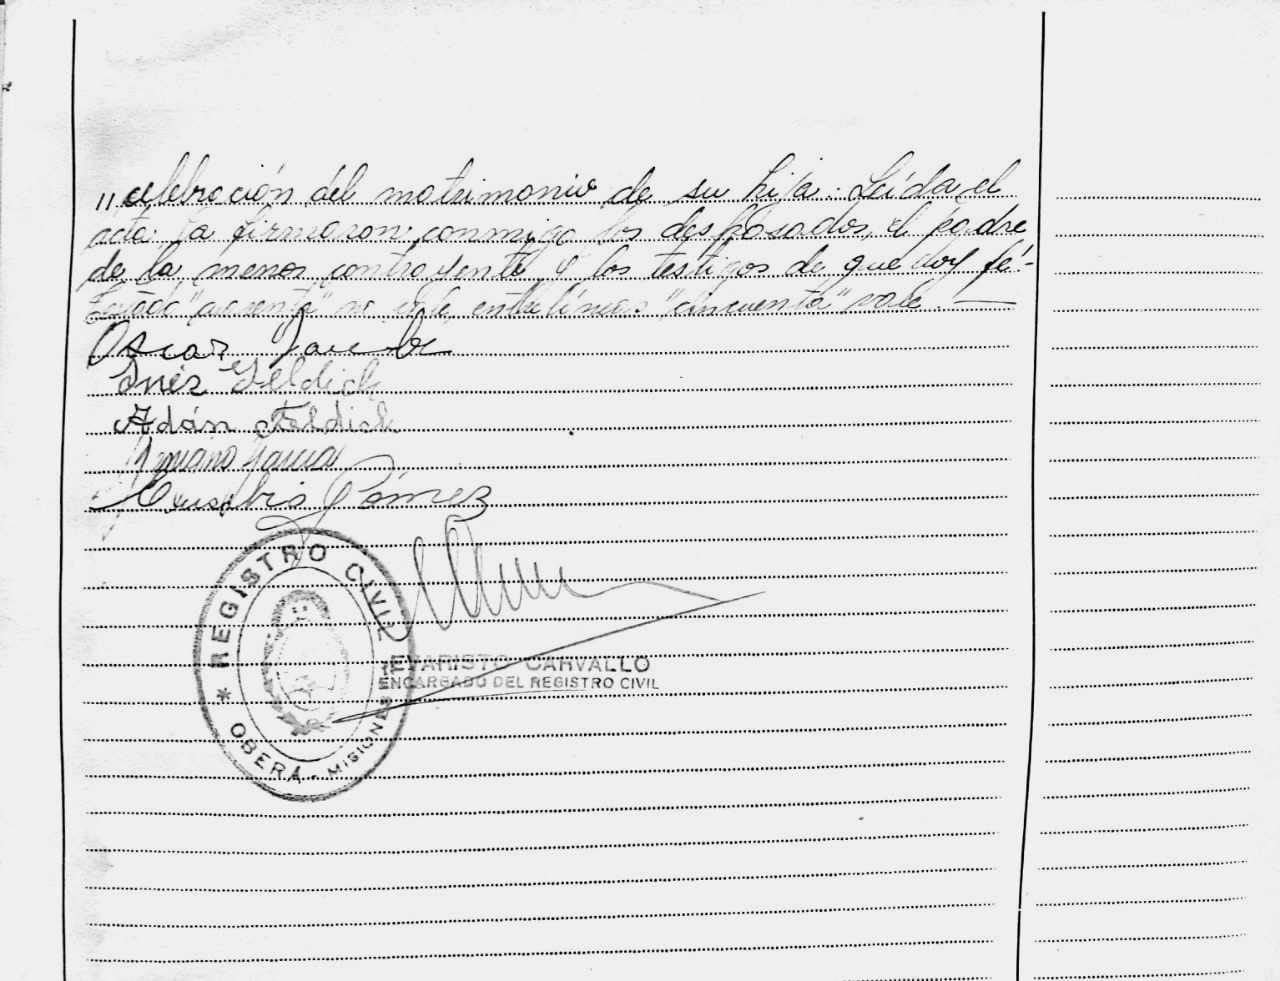 "celebración del matrimonio de su hija. Leída el
acta la firmaron conmigo los desposados, el padre
de la menor contrayente y los testigos de que doy fé.-
no vale, entre líneas: "cincuenta" vale.
Oscar
Inés Feldich
Adán Feldich
García
Eusebio Gómez
REGISTRO CIVIL
EVARISTO CARVALLO
ENCARGADO DEL REGISTRO CIVIL
* OBERÁ - MISIONES *